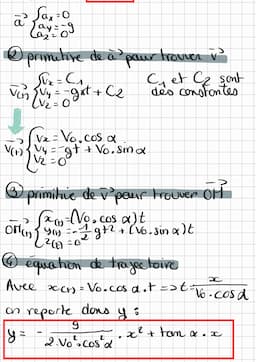 a⃗ { ax = 0
ay = -g
az = 0
② primitive de a⃗ pour trouver v⃗
v⃗(t) { Vx = C₁
Vy = -gxt + C₂
Vz = 0
C₁ et C₂ sont
des constantes
v⃗(t) { Vx = V₀. cos α
Vy = -gt + V₀. sin α
Vz = 0
③ primitive de v⃗ pour trouver OH⃗
OH⃗(t) { x(t) = (V₀. cos α)t
y(t) = -1/2 gt² + (V₀. sin α)t
z(t) = 0
④ équation de trajectoire
Avec x(t) = V₀. cos α. t => t = x / V₀. cos α
on reporte dans y :
y = - g / 2.V₀².cos²α . x² + tan α . x